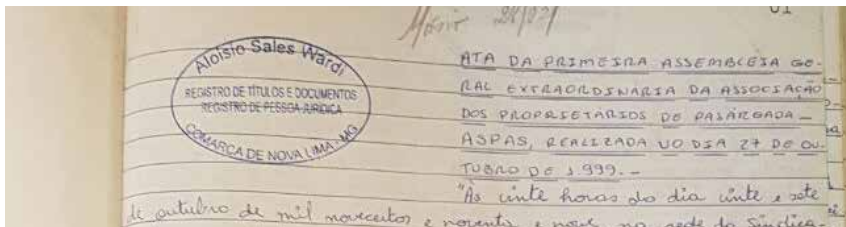 Márcio 28/07
01
Aloisio Sales Wardi
REGISTRO DE TÍTULOS E DOCUMENTOS
REGISTRO DE PESSOA JURÍDICA
COMARCA DE NOVA LIMA - MG
ATA DA PRIMEIRA ASSEMBLEIA GE-
RAL EXTRAORDINARIA DA ASSOCIAÇÃO
DOS PROPRIETARIOS DE PASÁRGADA -
ASPAS, REALIZADA NO DIA 27 DE OU-
TUBRO DE 1.999.-
"Às vinte horas do dia vinte e sete
de outubro de mil novecentos e noventa e nove na sede do Sindica-